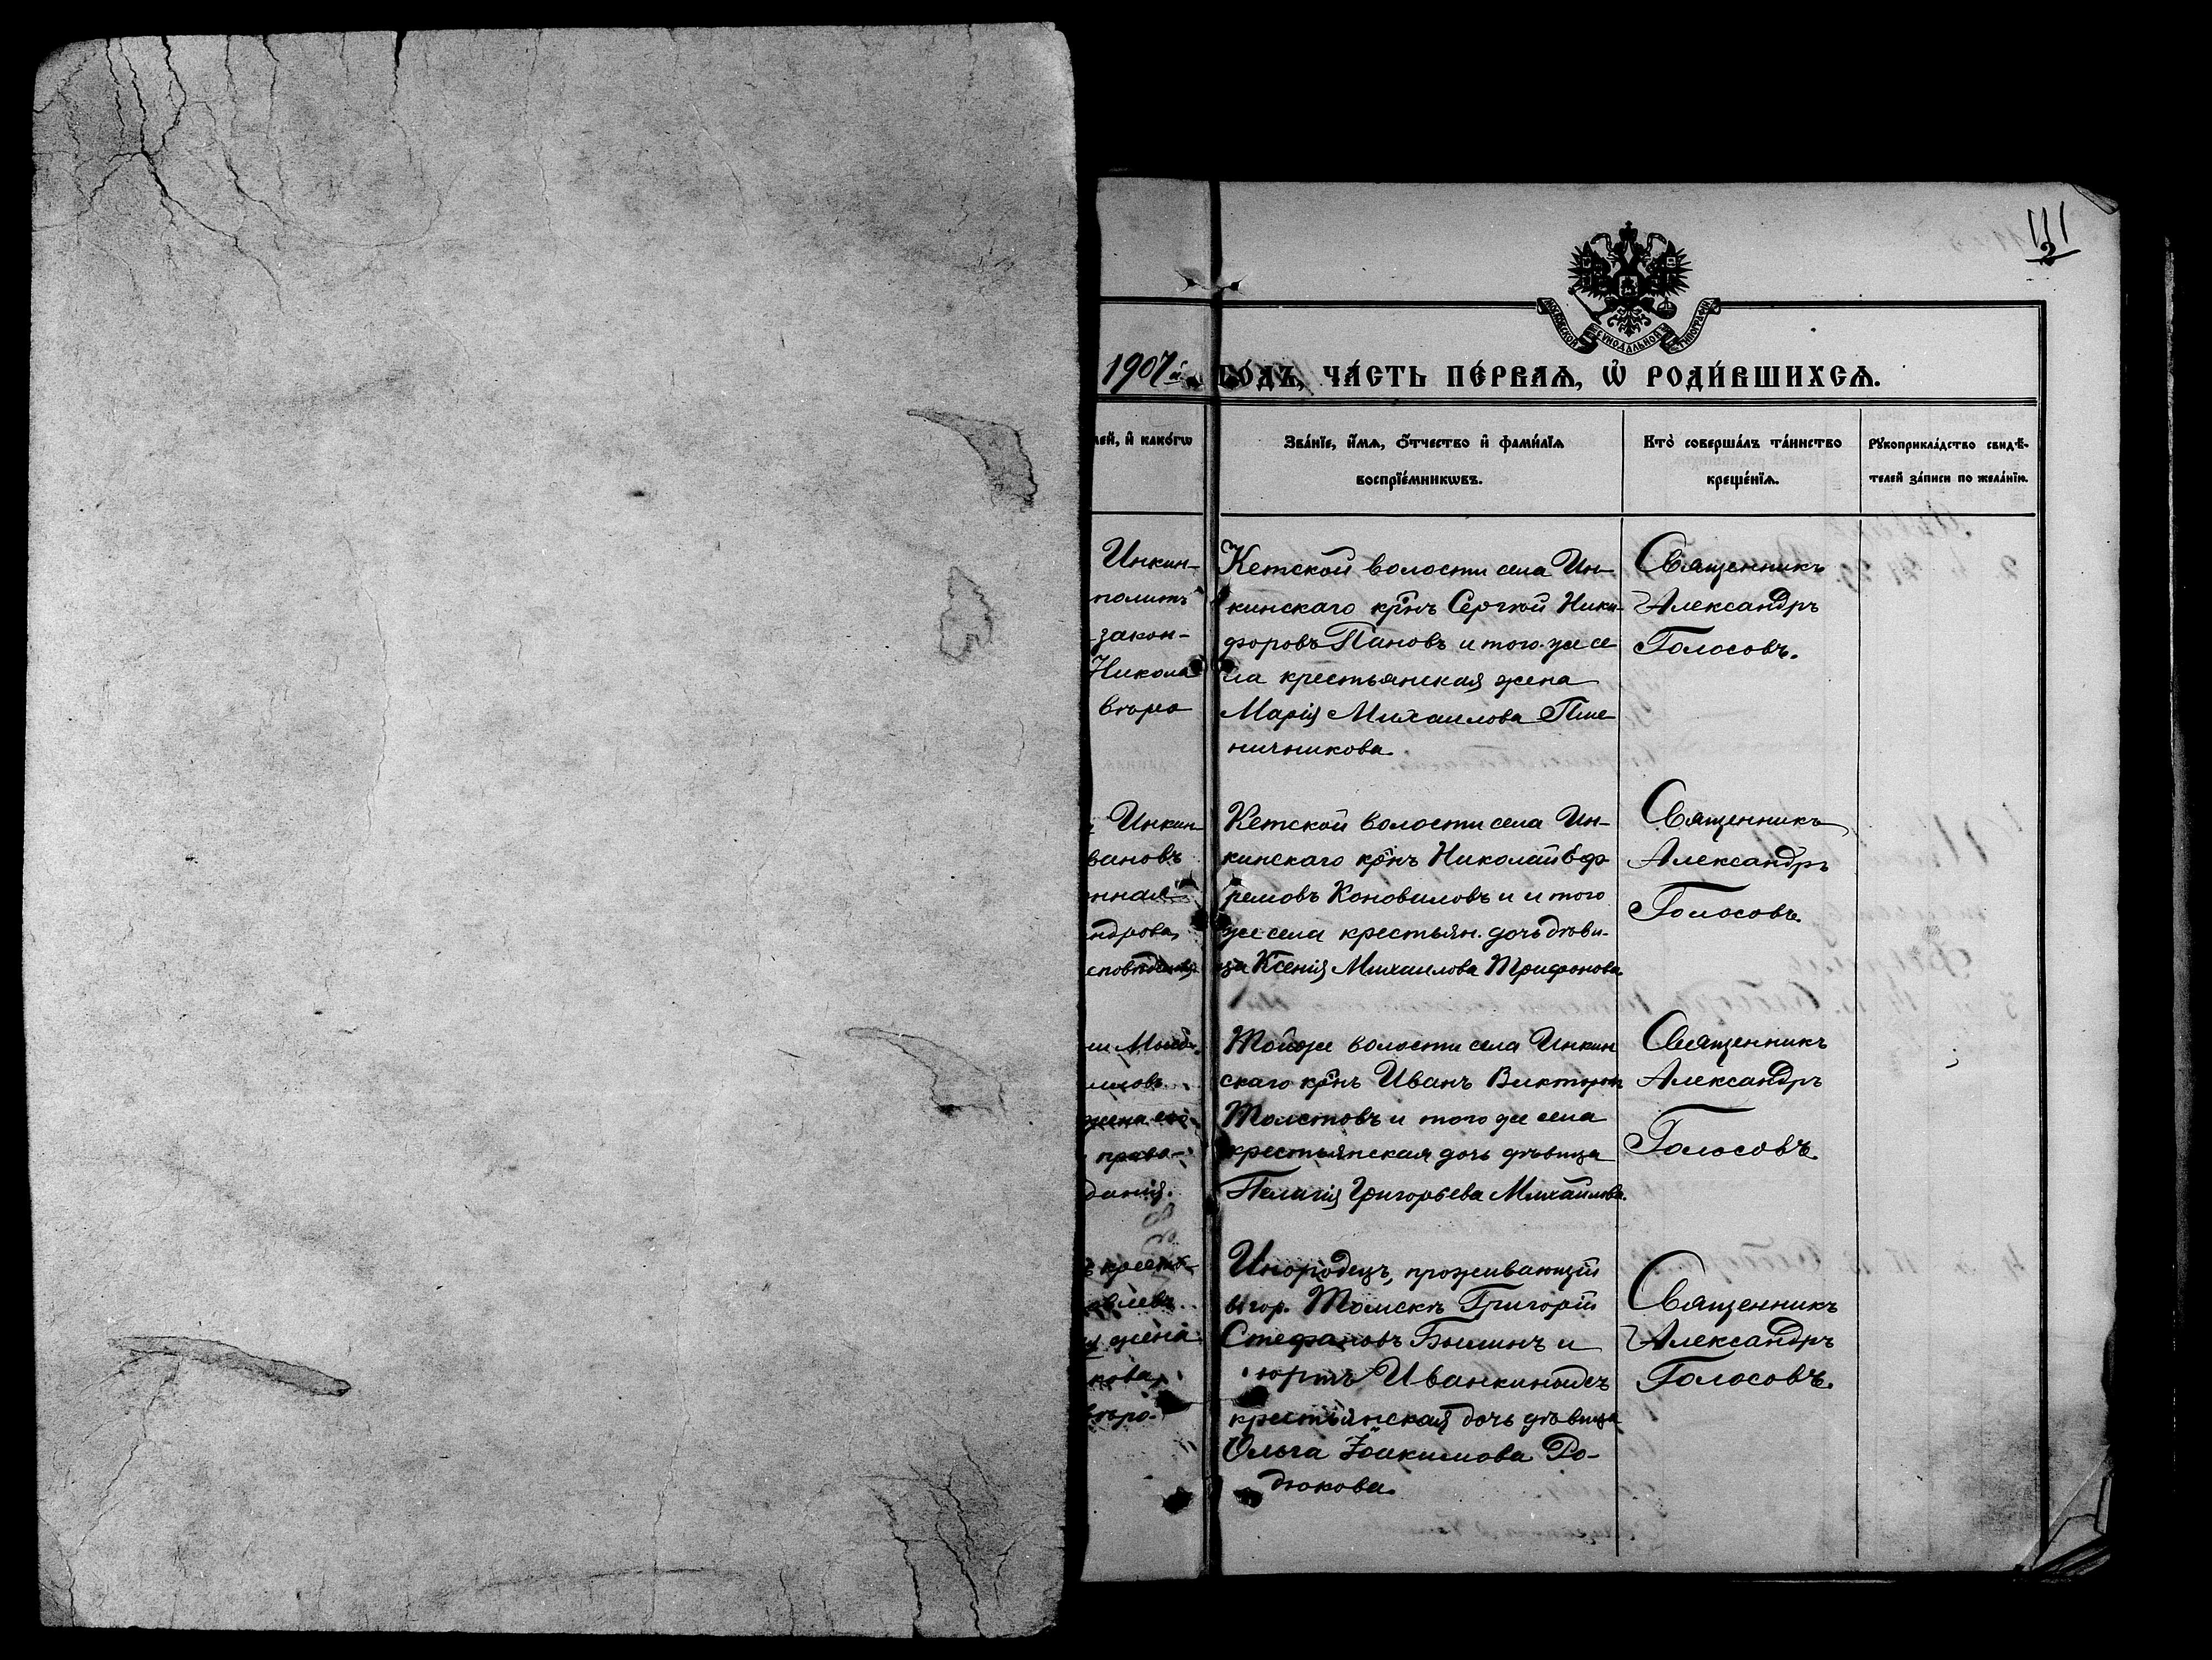 111
2
МОСКОВСКОЙ СУНОДАЛЬНОЙ ТИПОГРАФІИ
1907й ГО́ДЪ, ЧА́СТЬ ПЕ́РВАѦ, Ѽ РОДИ́ВШИХСѦ.
лей, и҆ како́гѡ
Зва́нїе, и҆́мѧ, ѻ҆́тчество и҆ фами́лїѧ
воспрїе́мникѡвъ.
Кто̀ соверша́лъ та́инство
креще́нїѧ.
Рꙋкоприкла́дство свидѣ́-
телей за́писи по жела́нїю.
Инкин-
политъ
закон-
Никола
вѣрно
Кетской волости села Ин-
кинскаго крнъ Сергѣй Ники-
форовъ Пановъ и того-же се
ла крестьянская жена
Марія Михаилова Пше
ничникова.
Священникъ
Александръ
Голосовъ.
Инкин-
вановъ
нная
ндрова,
Кетской волости села Ин-
кинскаго крнъ Николай Еф-
ремовъ Коноваловъ и и того
же села крестьян. дочь дѣви-
ца Ксенія Михаилова Трифонова
Священникъ
Александръ
Голосовъ.
жена его
право-
данія.
Тойже волости села Инкин
скаго крнъ Иванъ Викторовъ
Толстовъ и того же села
крестьянская дочь дѣвица
Пелагія Григорьева Михайлова.
Священникъ
Александръ
Голосовъ.
кресть-
овлевъ
жена
кова,
вѣро-
Инородецъ, проживающій
въ гор. Томскѣ Григорій
Стефановъ Былинъ и
юртъ Иванкиныхъ
крестьянская дочь дѣвица
Ольга Іоакимова Ро-
дюкова.
Священникъ
Александръ
Голосовъ.